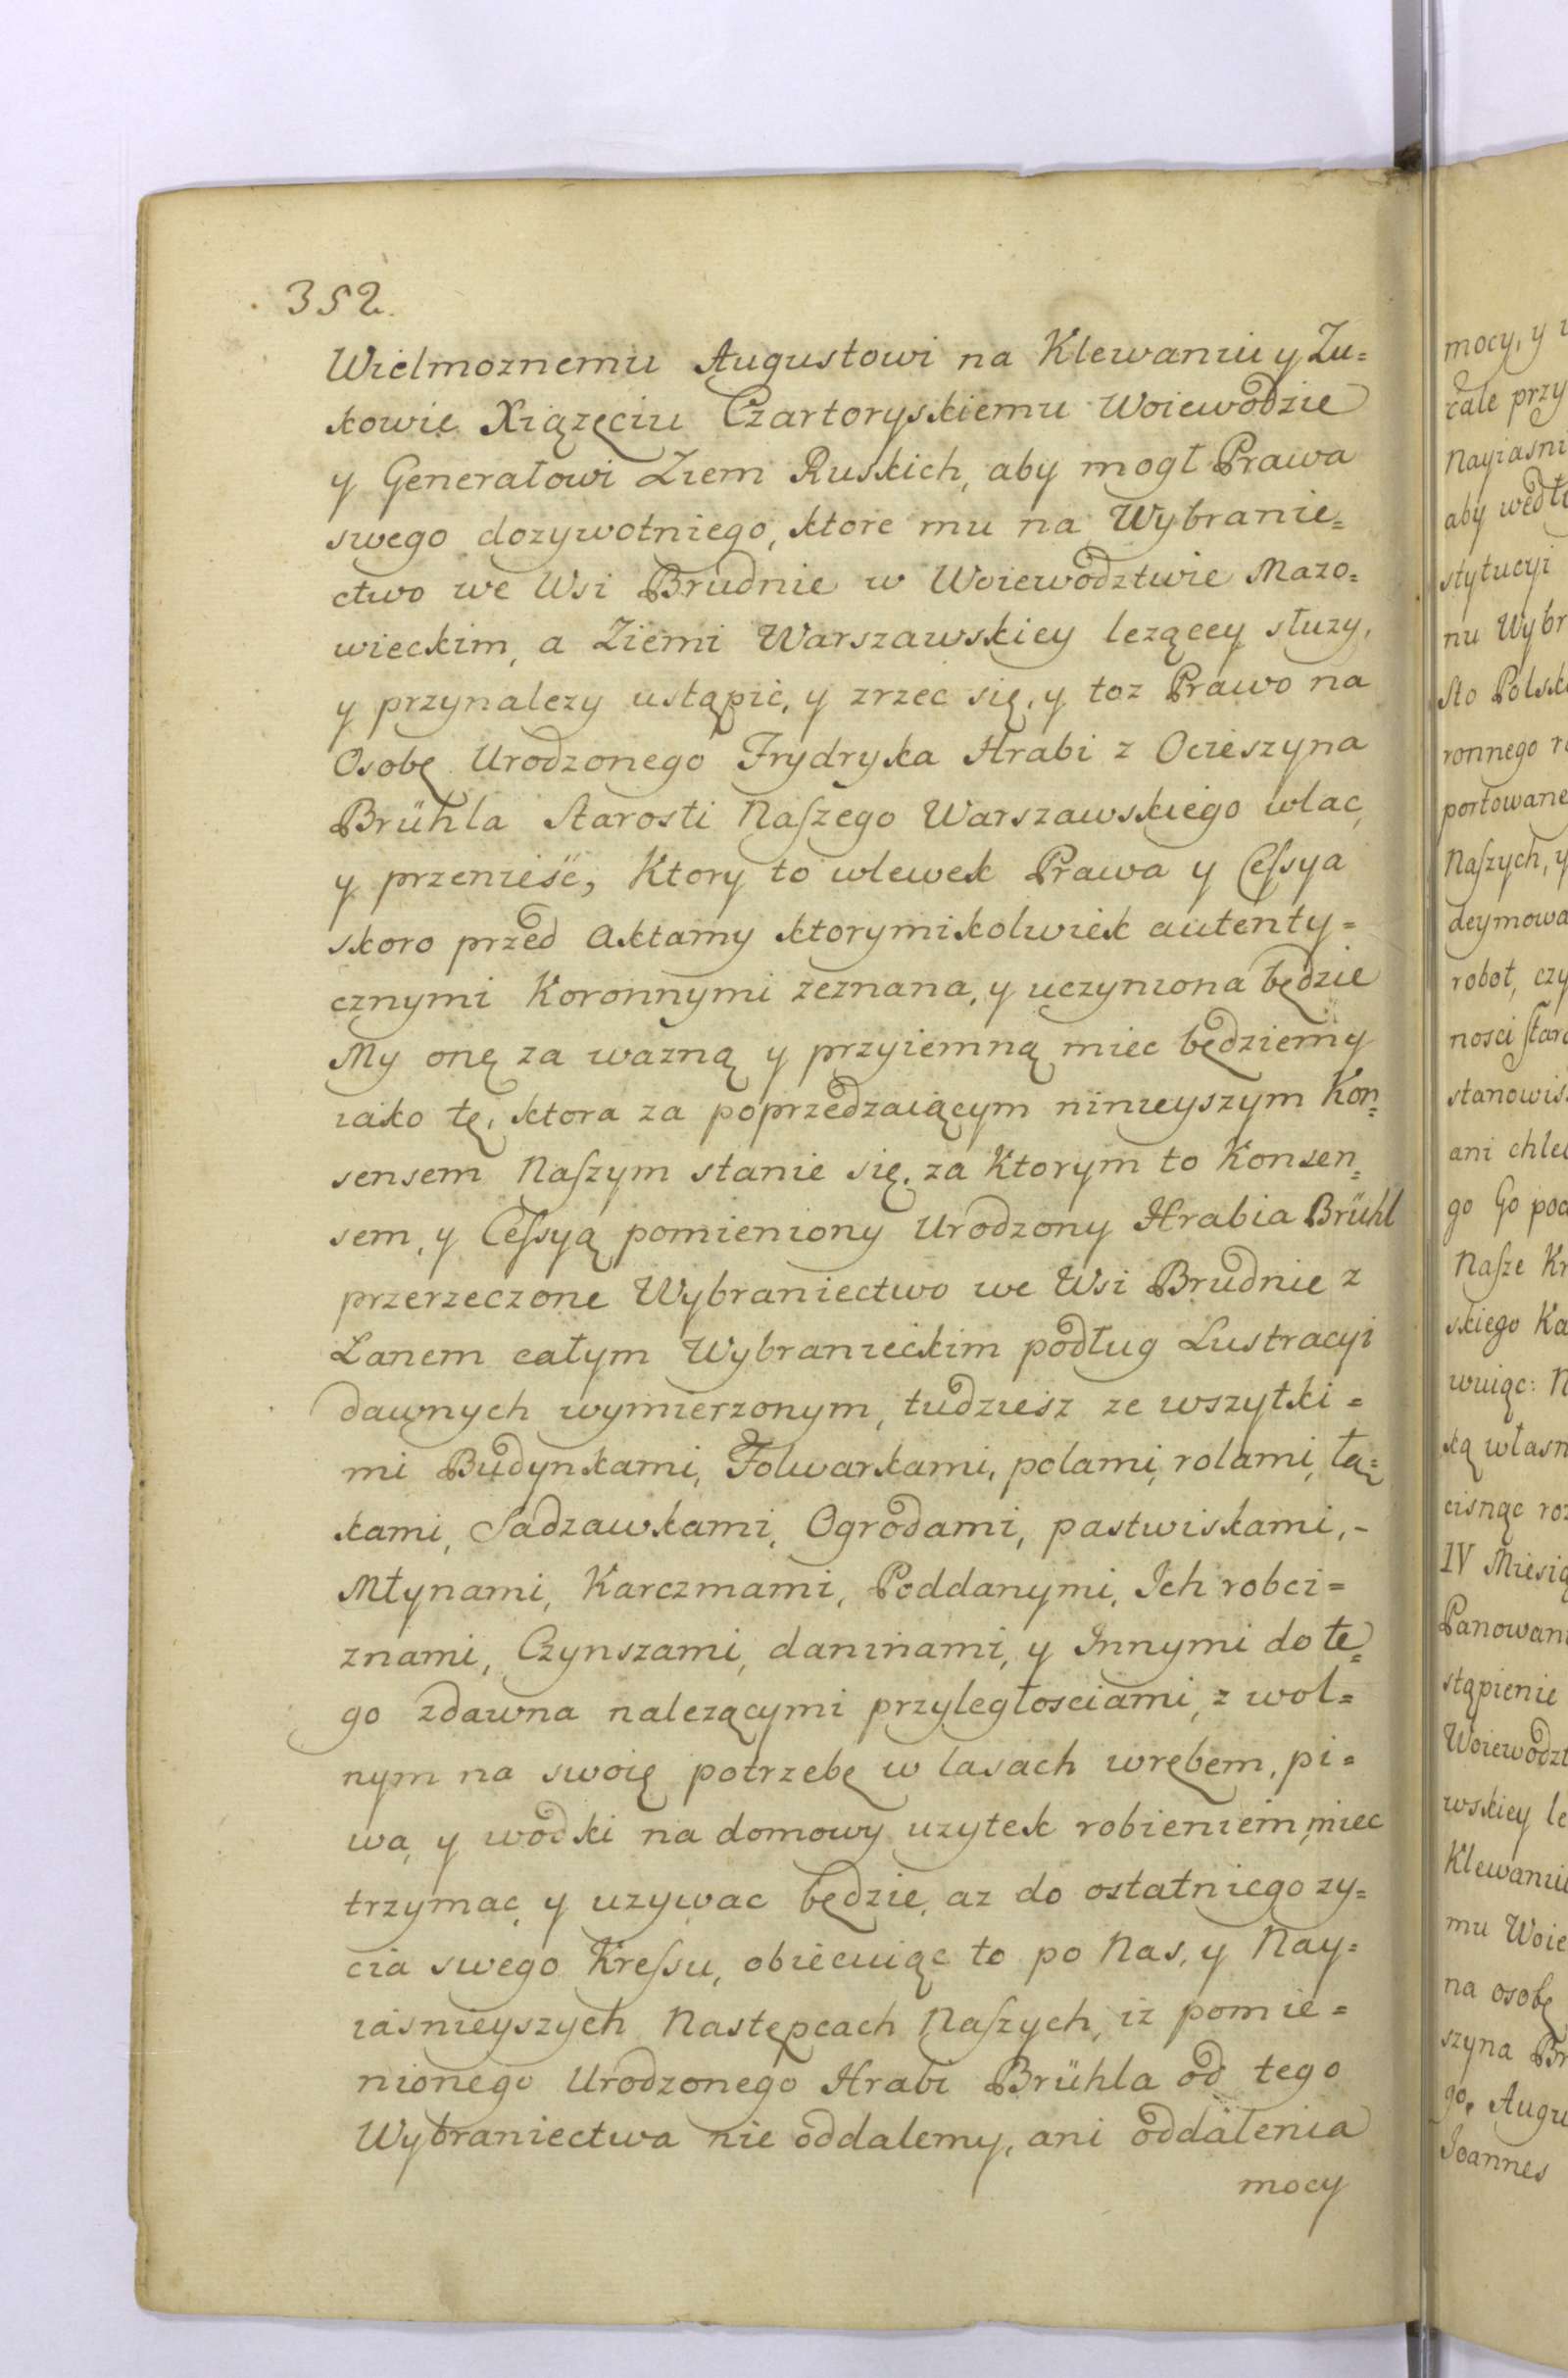 352.
Wielmoznemu Augustowi na Klewaniu y Zu=
kowie Xiązęciu Czartoryskiemu Woiewodzie
y Generałowi Ziem Ruskich, aby mogł Prawa
swego dozywotniego, ktore mu na Wybranie=
ctwo we Wsi Brudnie w Woiewodztwie Mazo=
wieckim, a Ziemi Warszawskiey lezącey słuzy,
y przynalezy ustąpić, y zrzec się, y toz Prawo na
Osobę Urodzonego Frydryka Hrabi z Ocieszyna
Brühla Starosti Naszego Warszawskiego wlac,
y przenieść, Ktory to wlewek Prawa y Cessya
skoro przed Aktamy ktorymikolwiek autenty=
cznymi Koronnymi zeznana, y uczyniona będzie
My onę za wazną y przyiemną miec będziemy
iako tę, ktora za poprzedzaiącym ninieyszym Kon=
sensem Naszym stanie się, za Ktorym to Konsen=
sem, y Cessyą pomieniony Urodzony Hrabia Brühl
przerzeczone Wybraniectwo we Wsi Brudnie z
Lanem całym Wybranieckim podług Lustracyi
dawnych wymierzonym, tudziesz ze wszytki=
mi Budynkami, Folwarkami, polami, rolami, łą=
kami, Sadzawkami, Ogrodami, pastwiskami,-
Młynami, Karczmami, Poddanymi, Ich robci=
znami, Czynszami, daninami, y Innymi do te=
go zdawna nalezącymi przyległosciami, z wol=
nym na swoię potrzebę w lasach wrębem, pi=
wa, y wodki na domowy uzytek robieniem, miec
trzymac, y uzywac będzie, az do ostatniego zy=
cia swego Kressu, obiecuiąc to po Nas, y Nay=
iasnieyszych Następcach Naszych, iz pomie=
nionego Urodzonego Hrabi Brühla od tego
Wybraniectwa nie oddalemy, ani oddalenia
mocy
mocy, y
cale przy
Nayiasni
aby wedłu
stytucyi
nu Wybr
sto Polsk
ronnego
portowane
Naszych, y
deymowa
robot, czy
nosci star
stanowis
ani chle
go Go pod
Nasze Kr
skiego Ka
wuiąc: N
ką własn
cisnąc roz
IV Miesią
Panowani
stąpienie
Woiewodzt
wskiey le
Klewaniu
mu Woie
na osobę
szyna Br
go, Augu
Joannes